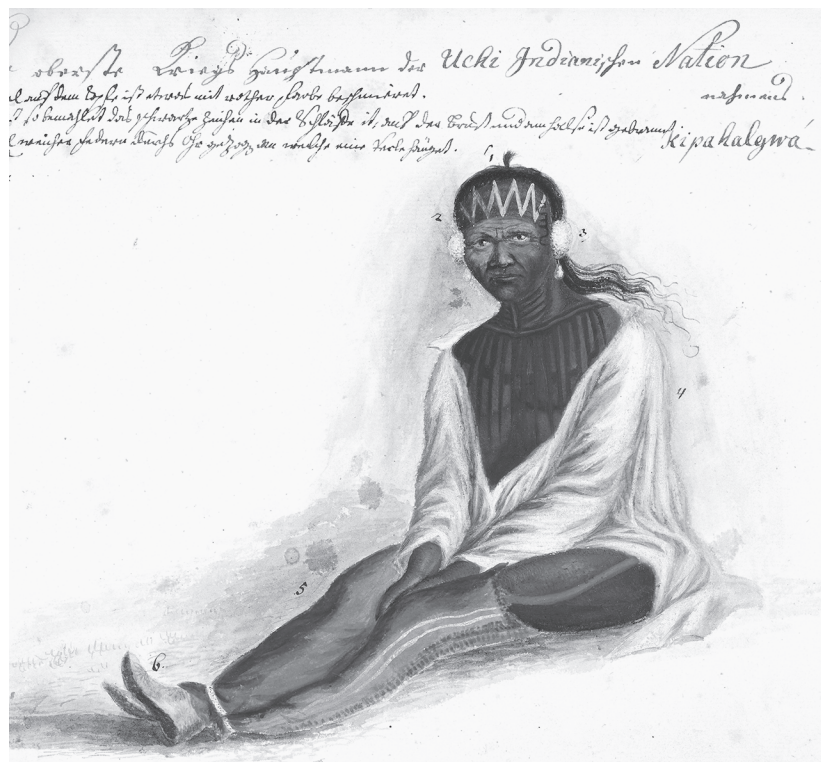 oberste Kriegs Hauptmann der Uchi Indianischen Nation
auf dem ist etwas mit rother Farbe beschmieret. nahmens
so bemahlet das schwartze Zeichen in der Schläffe ist, auf der Brust und am halse ist gebrannt. Kipahalgwá
weicher federn durchs Ohr gezogen an welche eine Perle hänget.
1
2 3
4
5
6.